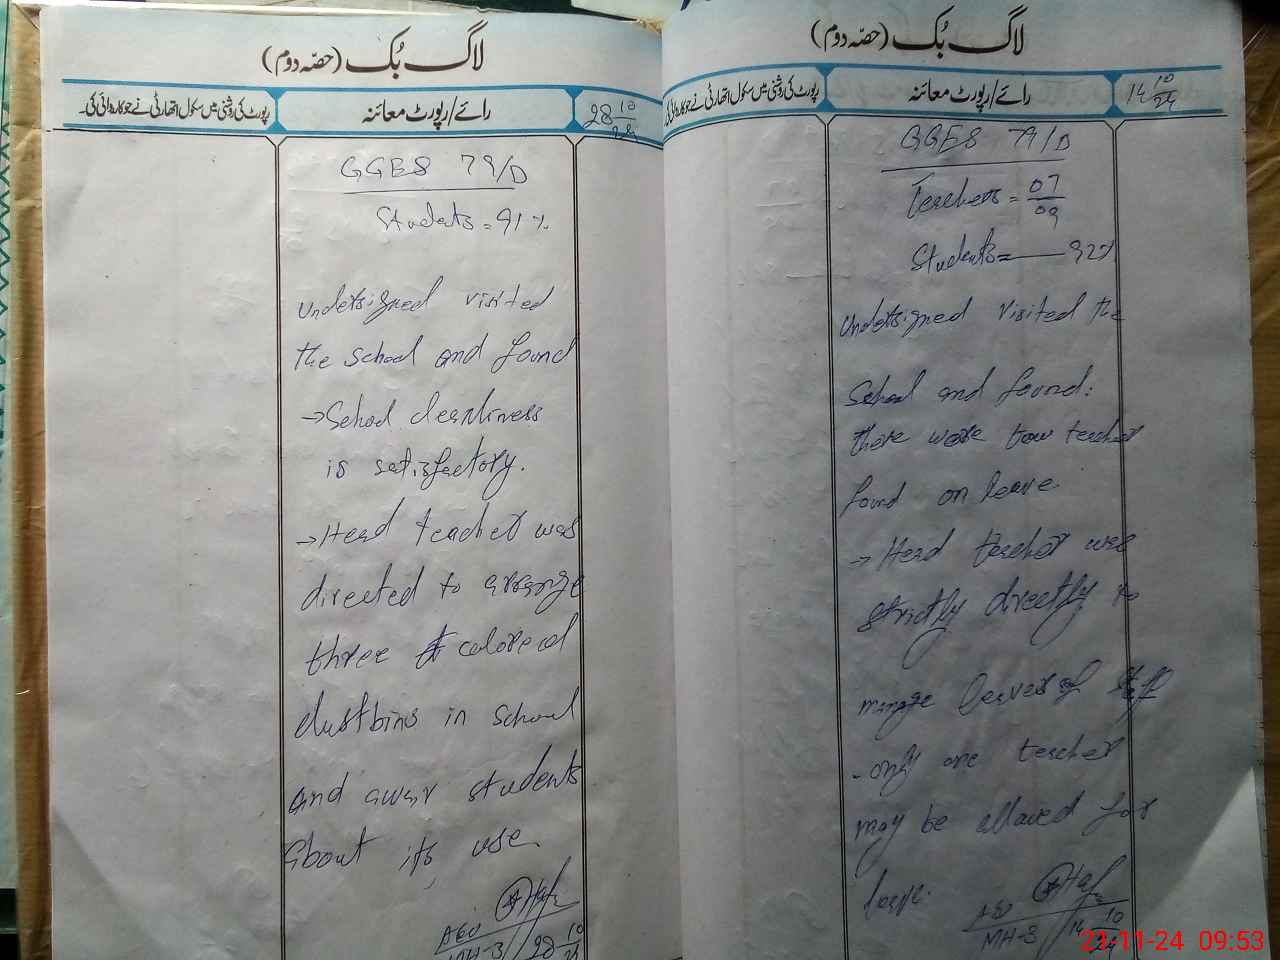 لاگ بُک (حصّہ دوم)
پورٹ کی روشنی میں سکول اتھارٹی نے جو کاروائی کی۔
رائے/رپورٹ معائنہ
28 10/24
GGES 79/D
Students = 91%
undersigned visited
the school and found
→ School cleanliness
is satisfactory.
→ Head teacher was
directed to arrange
three colored
dustbins in school
and awair students
about its use.
AEO
MH-3 / 28 10/24
لاگ بُک (حصّہ دوم)
پورٹ کی روشنی میں سکول اتھارٹی نے جو کاروائی کی
رائے/رپورٹ معائنہ
14 10/24
GGES 79/D
Teachers = 07/09
Students = — 92%
undersigned visited the
School and found:
there were tow teacher
found on leave
→ Head teacher was
strictly directly to
mange leaves of staff
- only one teacher
may be allowed for
leave.
AEO
MH-3 14 10/24
21-11-24 09:53